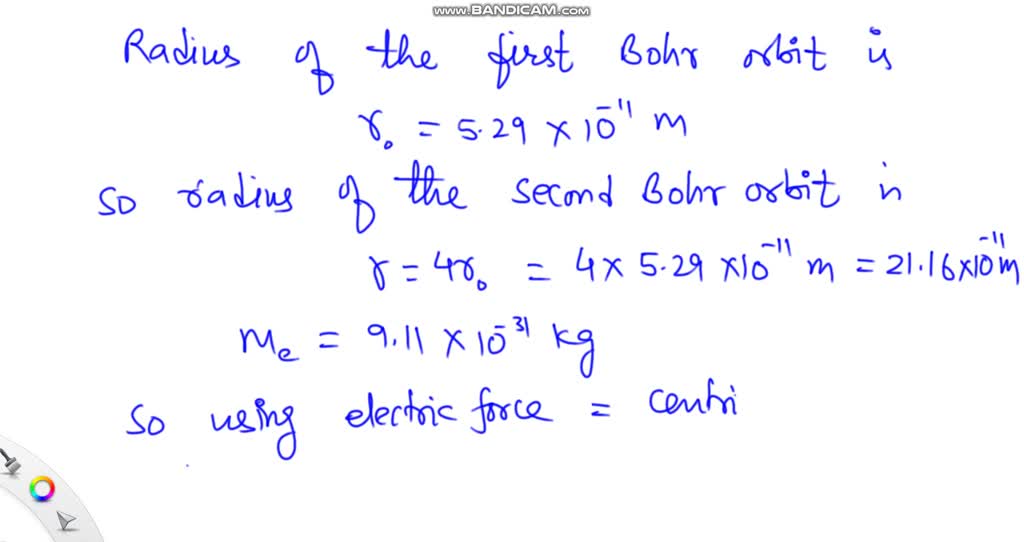 www.BANDICAM.com
Radius of the first Bohr orbit is
r₀ = 5.29 × 10⁻¹¹ m
so radius of the second Bohr orbit is
r = 4r₀ = 4 × 5.29 × 10⁻¹¹ m = 21.16 × 10⁻¹¹ m
mₑ = 9.11 × 10⁻³¹ kg
so using electric force = centri